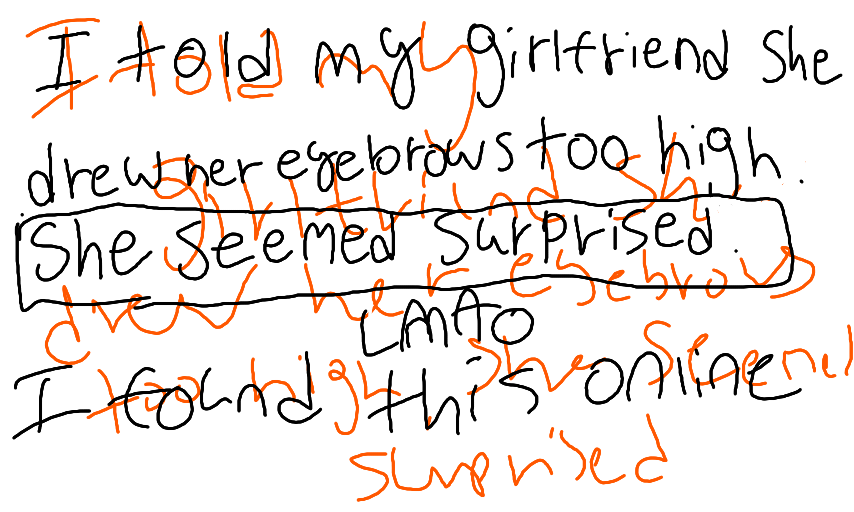 I told my girlfriend she
drew her eyebrows too high.
She seemed surprised.
LMAO
I found this online
I told my
girlfriend she
drew her eyebrows
too high She Seemed
surprised